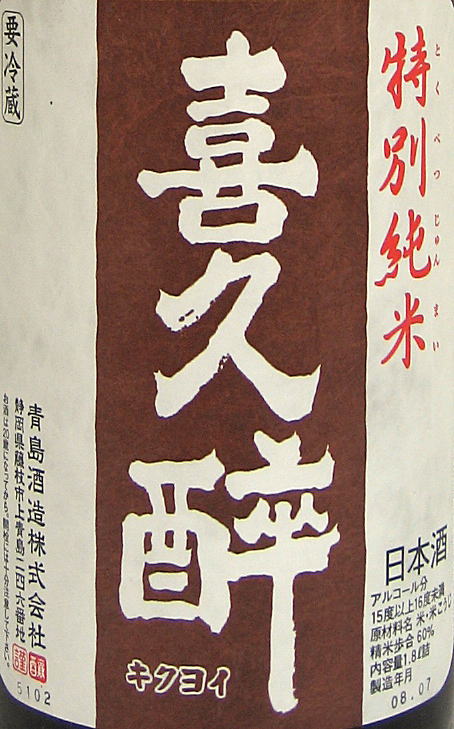 特別純米
とくべつじゅんまい
日本酒
アルコール分
15度以上16度未満
原材料名 米・米こうじ
精米歩合 60%
内容量1.8ℓ詰
製造年月
08.07
喜久醉
キクヨイ
要冷蔵
青島酒造株式会社
静岡県藤枝市上青島二四六番地
お酒は20歳になってから。開栓には十分注意して下さい。
謹醸
5102